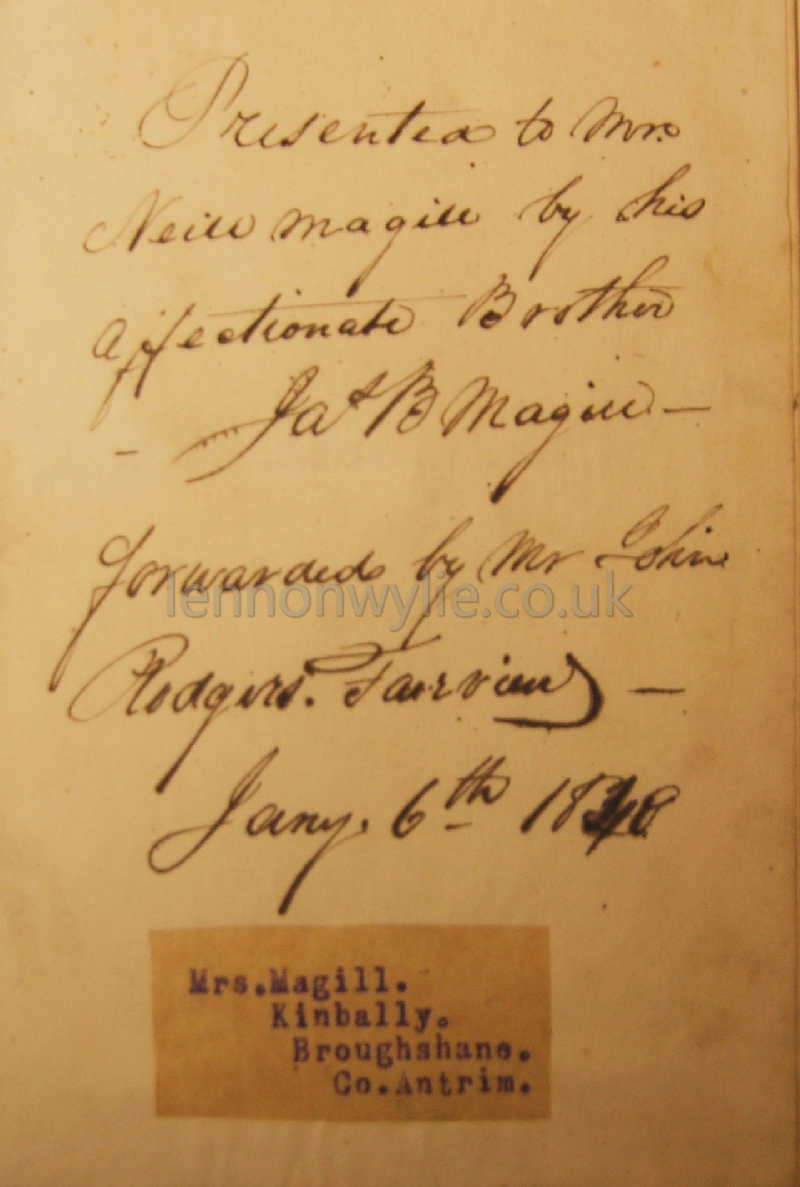 Presented to Mr.
Neill Magill by his
affectionate Brother
Jas B Magill —
forwarded by Mr John
lennonwylie.co.uk
Rodgers. Fairview —
Jany. 6th
Mrs.Magill.
Kinbally.
Broughshane.
Co.Antrim.